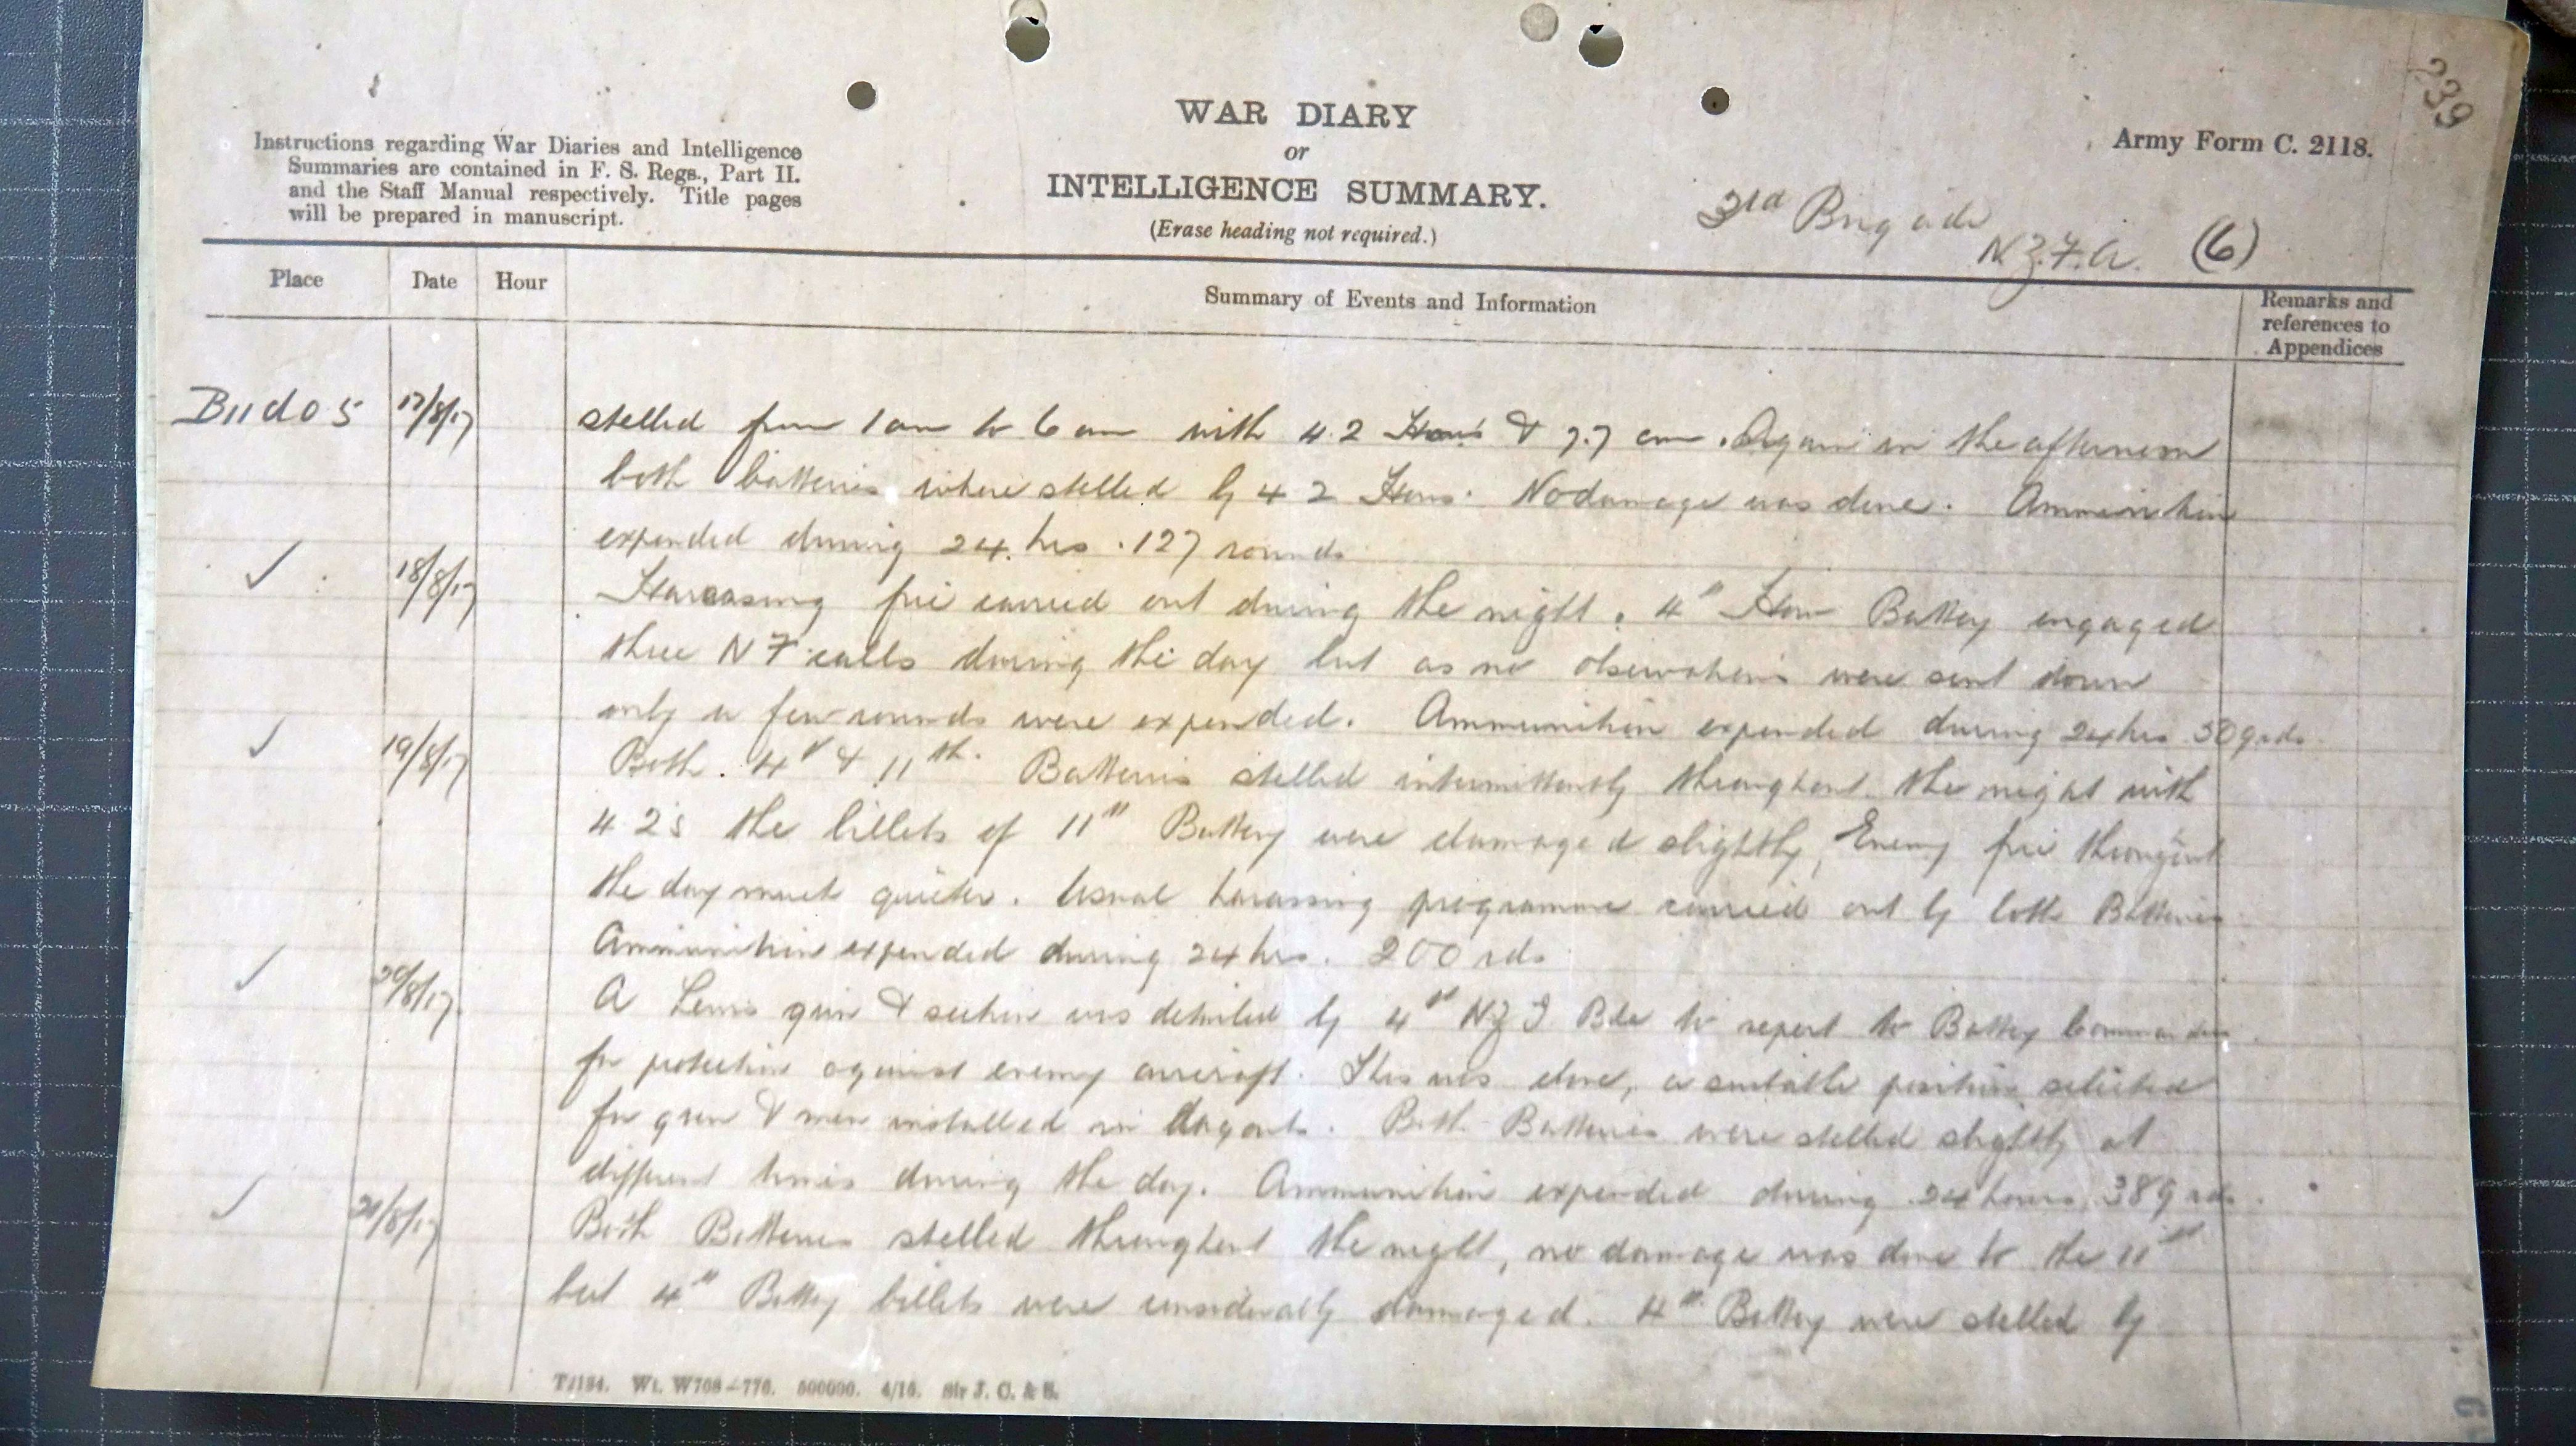 239
WAR DIARY
or
INTELLIGENCE SUMMARY.
(Erase heading not required.)
Instructions regarding War Diaries and Intelligence
Summaries are contained in F. S. Regs., Part II.
and the Staff Manual respectively. Title pages
will be prepared in manuscript.
Army Form C. 2118.
3rd Brigade
N.Z.F.A. (6)
Place Date Hour Summary of Events and Information Remarks and
references to
Appendices
17/8/17 shelled from 1 am to 6 am with 4.2 Hows & 7.7 cm. Again in the afternoon
both batteries where shelled by 4 2 Hows. No damage was done. Ammunition
expended during 24. hrs. 127 rounds
✓ 18/8/17 Harcasing fire carried out during the night. 4th How Battery engaged
three N F calls during the day but as no observations were sent down
only a few rounds were expended. Ammunition expended during 24 hrs rds.
✓ 19/8/17 Both. 4th & 11th. Batteries shelled intermittently throughout the night with
4 2s the billets of 11th Battery were damaged slightly, Enemy fire throughout
the day much quieter. Usual harassing programme carried out by both Batteries
Ammunition expended during 24 hrs. 200 rds.
✓ 20/8/17 A Lewis gun & section was detailed by 4th NZ I Bde to report to Battery Commander
for protection against enemy aircraft. This was done, a suitable position selected
for gun & men installed in dugouts. Both Batteries were shelled slightly at
different times during the day. Ammunition expended during 24 hours 389 rds.
✓ 21/8/17 Both Batteries shelled throughout the night, no damage was done to the 11th
but 4th Battery billets were considerably damaged. 4th Battery were shelled by
T/134. Wt. W708—776. 500000. 4/15. Sir J. C. & S.